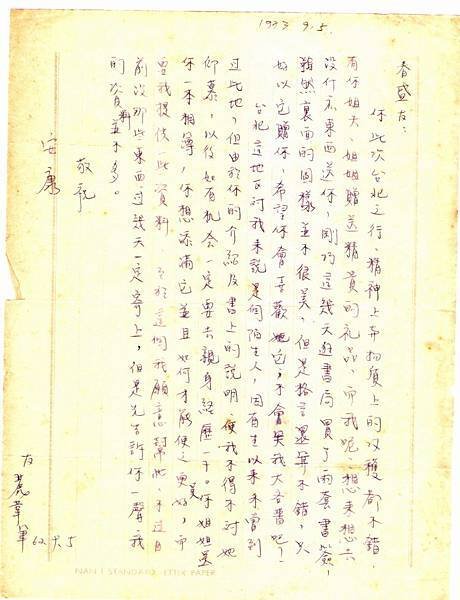 1973 9.5.
春盛友：
你此次台北之行、精神上与物質上的收穫都不錯，
有你姐夫、姐姐贈送精貴的礼品、而我呢、想來想去
沒什広東西送你，剛巧這幾天逛書局買了兩套書簽，
雖然裏面的圖樣並不很美、但是格言還算不錯，只
好以它贈你、希望你會喜歡她它，不會笑我大吝嗇吧！
台北這地方对我來說是個陌生人，因有生以來未曾到
过此地，但由於你的介紹及書上的説明、使我不得不对她
仰慕，以後如有机会一定要去親身経歷一下。你姐姐送
你一本相簿，你想添滿它並且如何才能使之更美好，而
要我提供此次資料、至於這個我願意幫忙，不过目
前次那些東西过幾天一定寄上，但是先告訴你一聲，我
的資料並不多。
敬祝
安康
友 麗華 筆 62.9.5
NAN I STANDARD LETTER PAPER